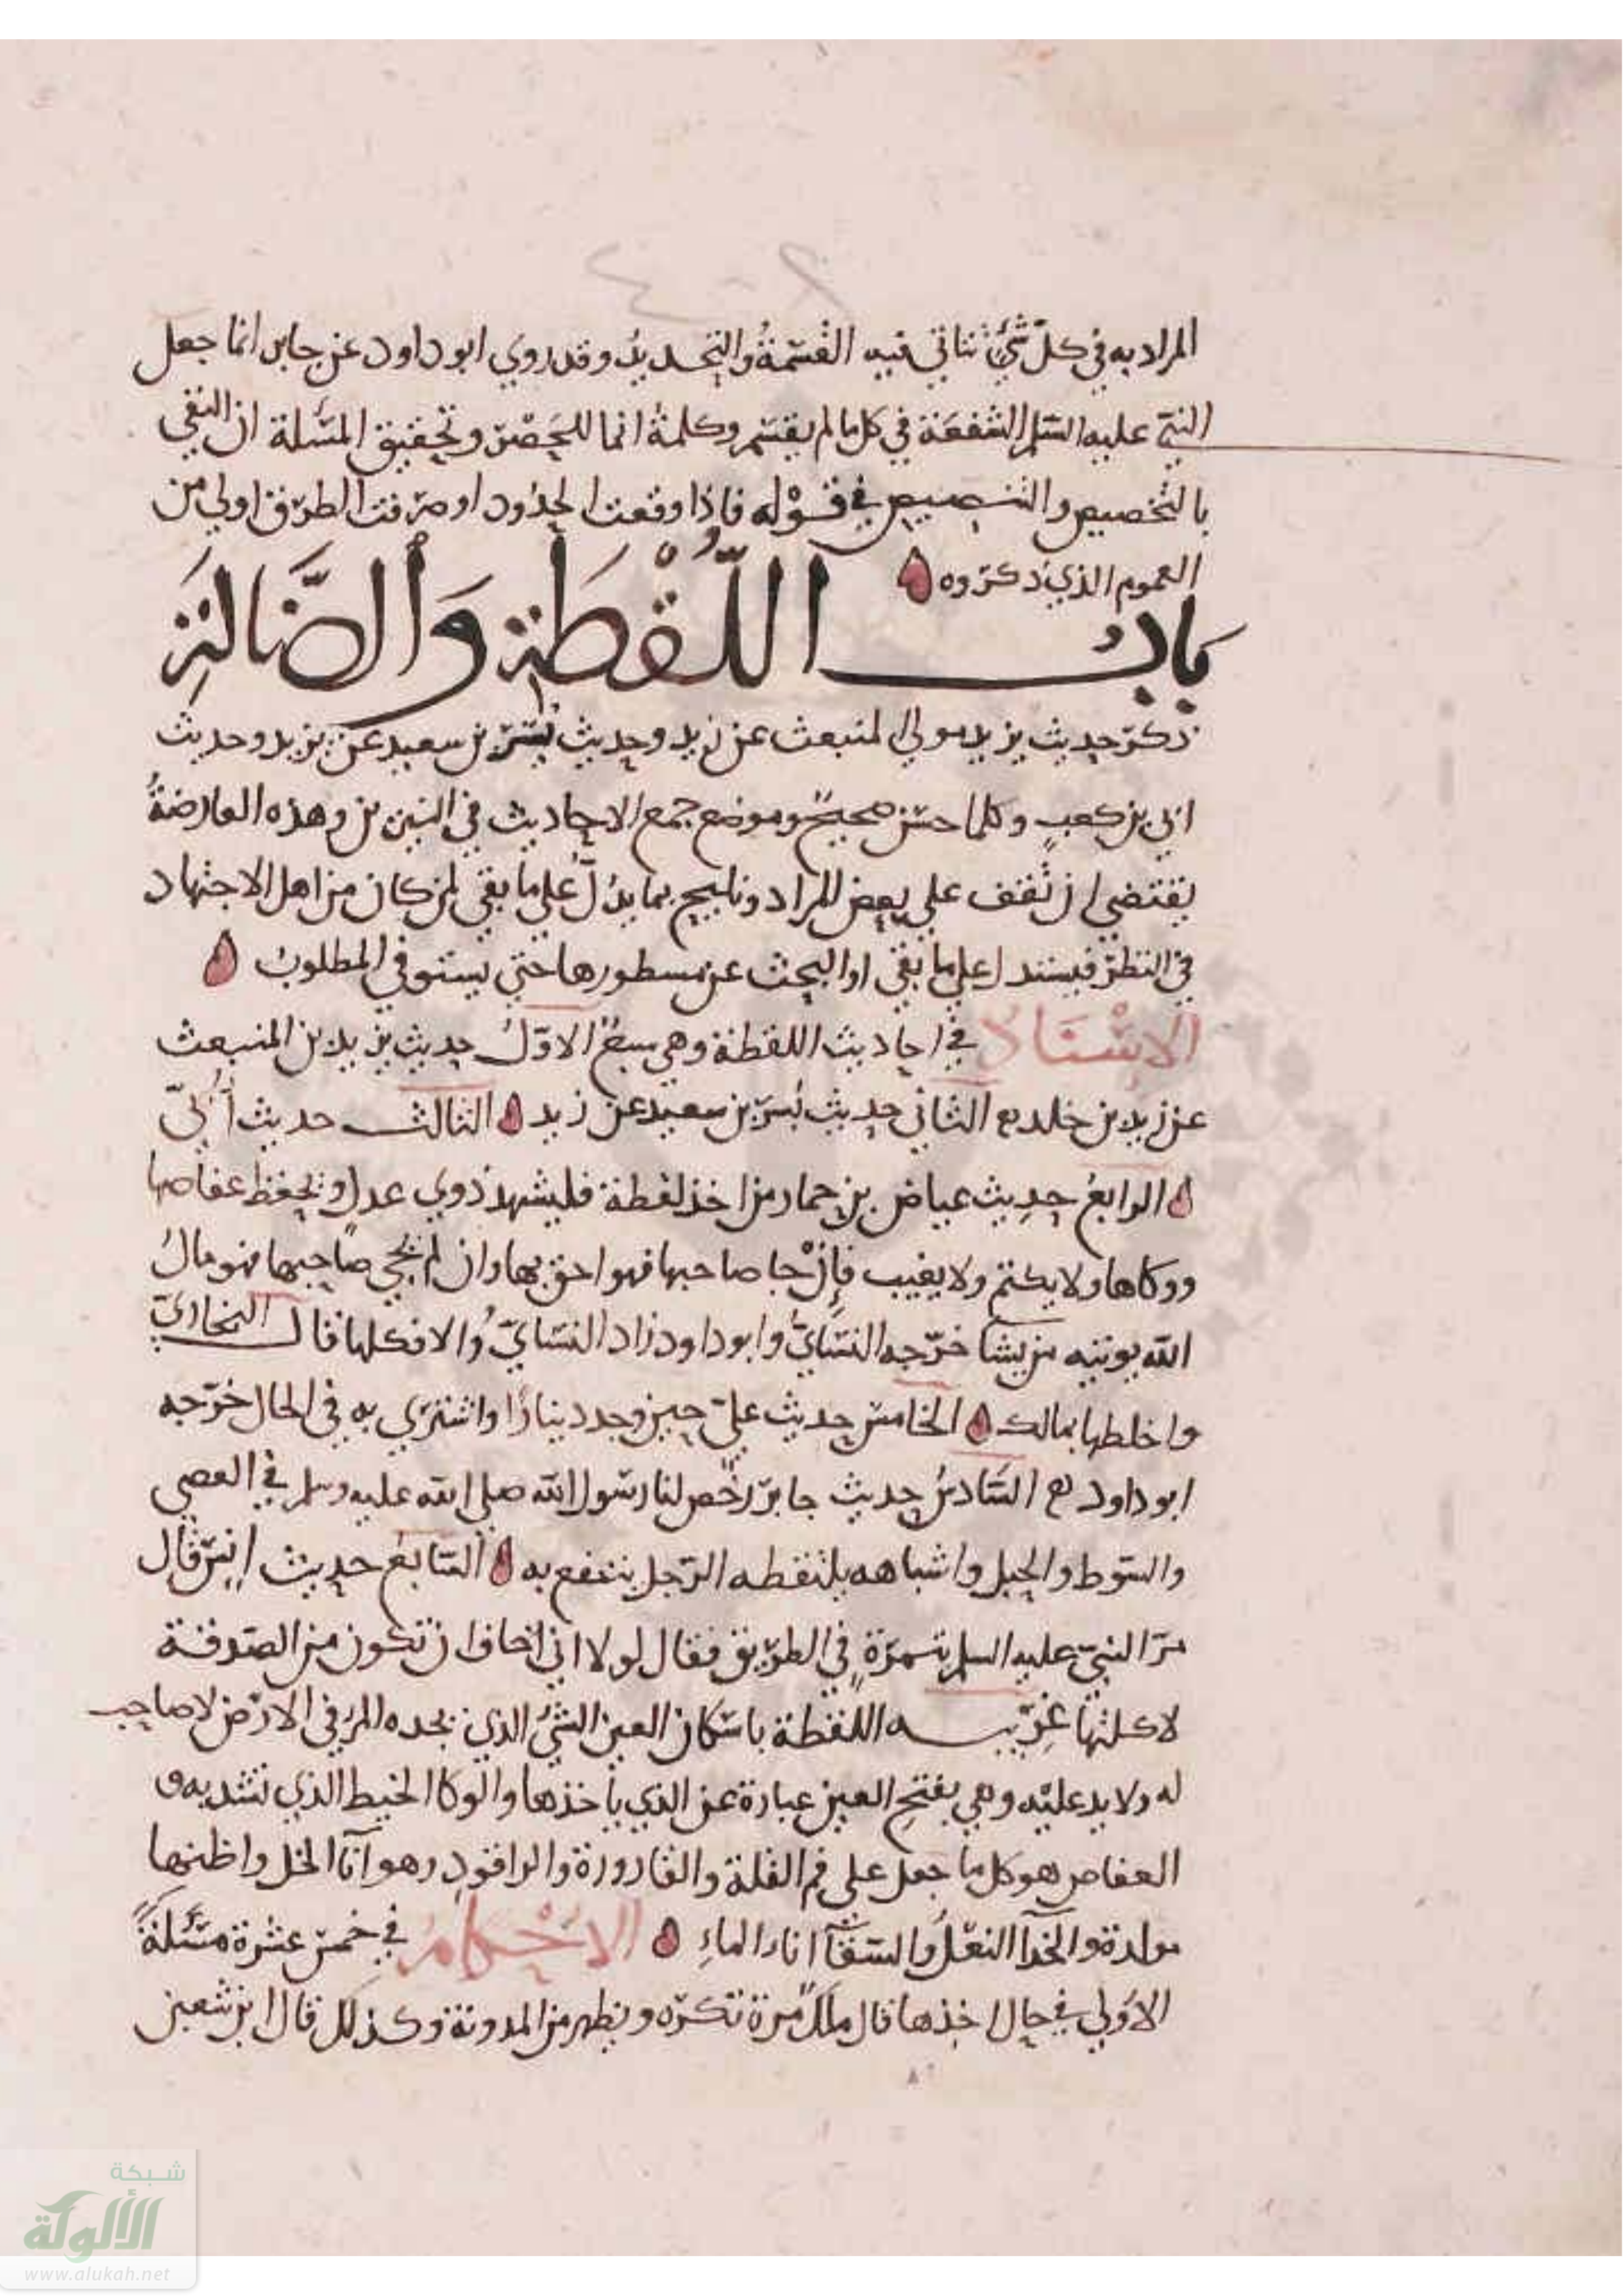 المراد به في كلّ شيء تتاتي فيه القسمةُ والتحديدُ وقد روي ابو داود عن جابر انما جعل
النبيّ عليه السّلم الشفعة في كل ما لم يقسم وكلمةُ انما للحصر وتحقيق المسئلة ان النفي
بالتخصيص والتنصيص في قوله فاذا وقعت الحدُود او صرّفت الطرق اولي من
العموم الذي ذكروه
بَابُ اللُّقْطَةِ وَالضَّالَّةِ
ذكر حديث يزيد مولي المنبعث عن زيد وحديث بُسْر بن سعيد عن يزيد وحديث
ابي بن كعب وكلها حسن صحيح وموضع جمع الاحاديث في النيرين وهذه العارضةُ
يقتضي ان تقف علي بعض المراد وتلميح بما يدُلّ علي ما بقي لمن كان من اهل الاجتهاد
في النظر فيستدل علي ما بقي او البحث عن مسطورها حتي يستوفي المطلوبُ
الإسْنَادُ في احاديث اللقطة وهي سبعٌ الاوّلُ حديث يزيد بن المنبعث
عن زيد بن خالد الثاني حديث بُسر بن سعيد عن زيد الثالث حديث أُبَيّ
الرابعُ حديث عياض بن حمار من اخذ لقطة فليشهد ذوي عدل ويحفظ عفاصها
ووكاها ولا يكتم ولا يغيب فإنْ جا صاحبها فهو احق بها وان لم يجي صاحبها فهو مالُ
الله يوتيه من يشا خرّجه النسَايُّ وابو داود زاد النسَايّ والا فكلها قال البخاري
واخلطها بمالك الخامس حديث عليّ حين وجد دينارًا واشتري به في الحال خرّجه
ابو داود السَّادسُ حديث جابر رخّص لنا رسول الله صلي الله عليه وسلم في العصي
والسّوط والحبل واشباهه يلتقطه الرّجل ينتفع به السّابعُ حديث انس قال
مرّ النبيّ عليه السلم بتمرةٍ في الطريق فقال لولا اني اخاف ان تكون من الصّدقة
لاكلتها غريبه اللقطة باسْكان العين الشيُ الذي يجده المرُ في الارض لا صاحب
له ولا يد عليْه وهي بفتح العين عبارة عن الذي ياخذها والوكا الخيط الذي تشد به و
العفاص هو كل ما جعل علي فم القلة والقارورة والراقودِ وهو آنآ الخل واظنها
مولدة والحذآ النعْلُ والسّقَآ اناء الماءِ الاحْكامُ في خمس عشرة مسْئلةً
الاوُلي في حال اخذها قال ملك مرة تكره ويظهر من المدونة وكذلك قال ابن شعبن
شبكة
الألوكة
www.alukah.net